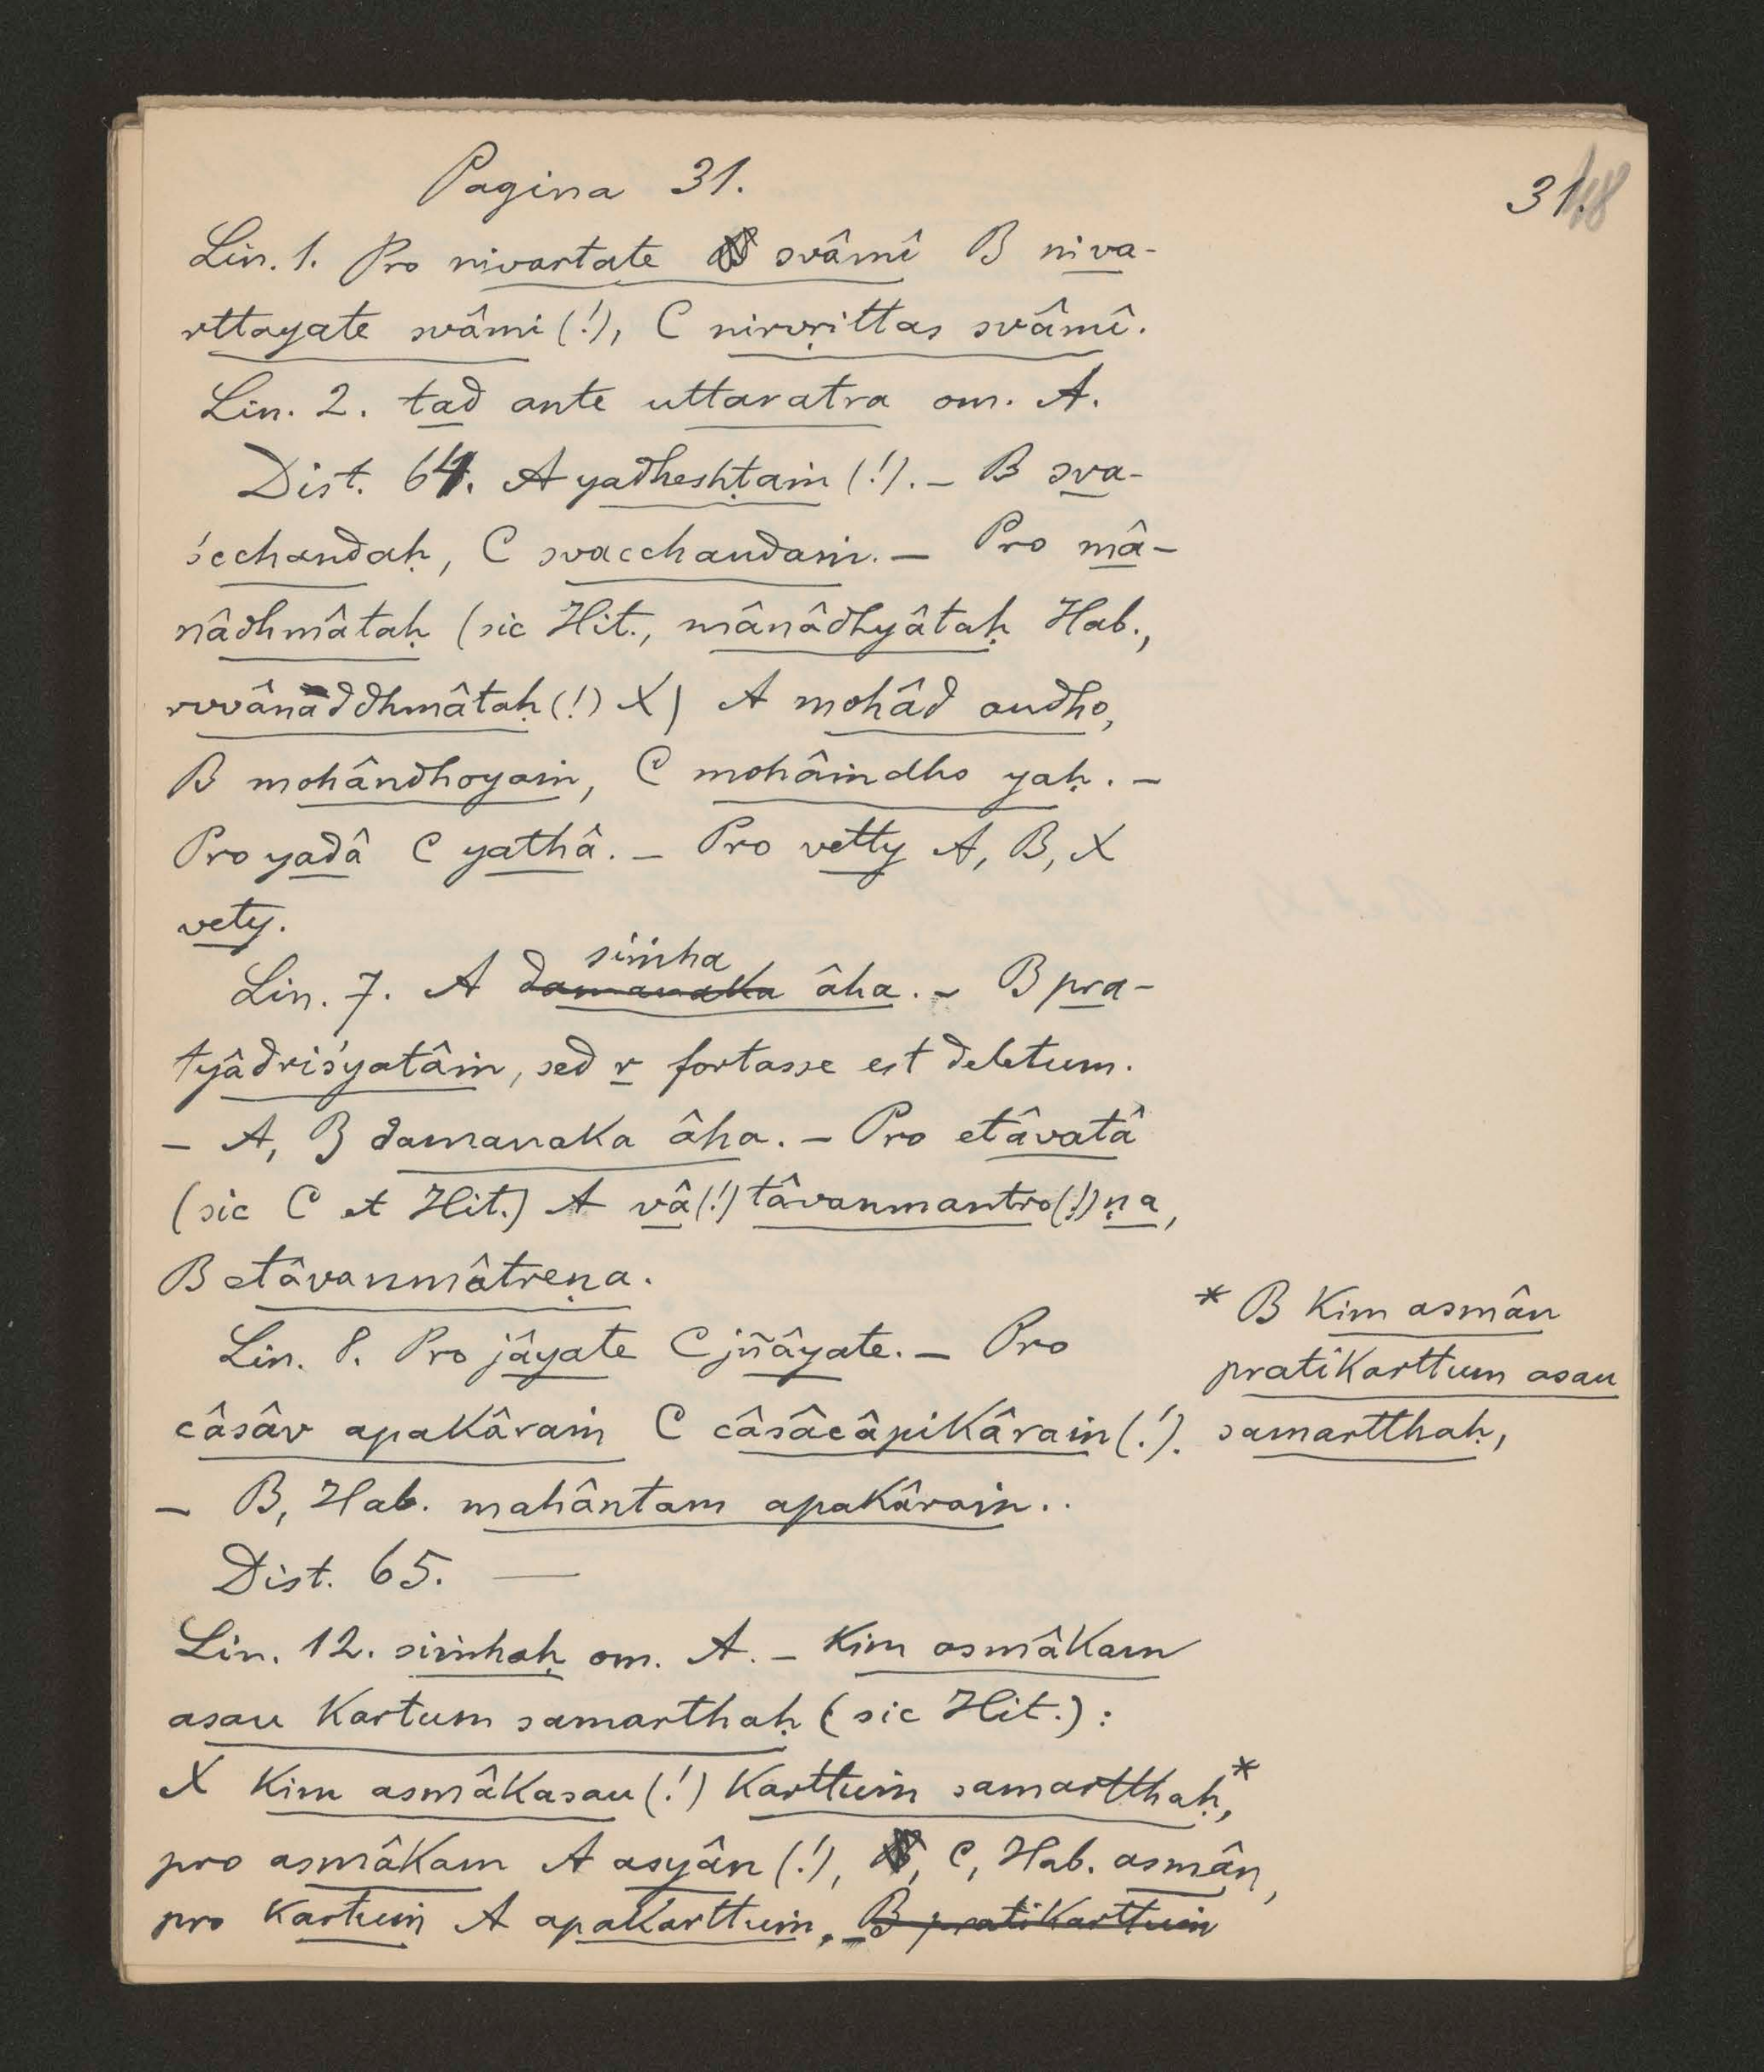 Pagina 31.
31.
Lin. 1. Pro nivartate svâmî B niva-
rttayate svâmi (!), C nirvṛittas svâmî.
Lin. 2. tad ante uttaratra om. A.
Dist. 64. A yadheshṭaṁ (!). – B sva-
ścchandaḥ, C svacchandaṁ. – Pro mâ-
nâdhmâtaḥ (sic Hit., mânâdhyâtaḥ Hab.,
rvvânâddhmâtaḥ (!) X) A mohâd andho,
B mohândhoyaṁ, C mohâṁdho yaḥ. –
Pro yadâ C yathâ. – Pro vetty A, B, X
vety.
Lin. 7. A damanaka siṁha âha. – B pra-
tyâdriśyatâṁ, sed r fortasse est deletum.
– A, B damanaka âha. – Pro etâvatâ
(sic C et Hit.) A vâ (!) tâvanmantro (!) ṇa,
B etâvanmâtreṇa.
Lin. 8. Pro jâyate C jñâyate. – Pro
câsâv apakâraṁ C câsâcâpikâraṁ (!).
– B, Hab. mahântam apakâraṁ..
Dist. 65. —
Lin. 12. siṁhaḥ om. A. – kim asmâkam
asau kartum samarthaḥ (sic Hit.):
X kim asmâkasau (!) karttuṁ samartthaḥ,*
pro asmâkam A asyân (!), C, Hab. asmân,
pro kartuṁ A apakarttuṁ, B pratikarttuṁ
* B kim asmân
pratikarttum asau
samartthaḥ,